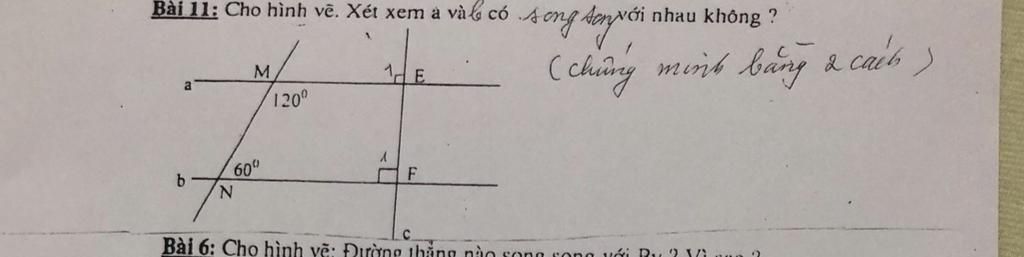 Bài 11: Cho hình vẽ. Xét xem a và b có song song với nhau không ?
(chứng minh bằng 2 cách)
M 1 E
a
120⁰
60⁰ 1 F
b
N
c
Bài 6: Cho hình vẽ: Đường thẳng nào song song với By ? Vì sao ?